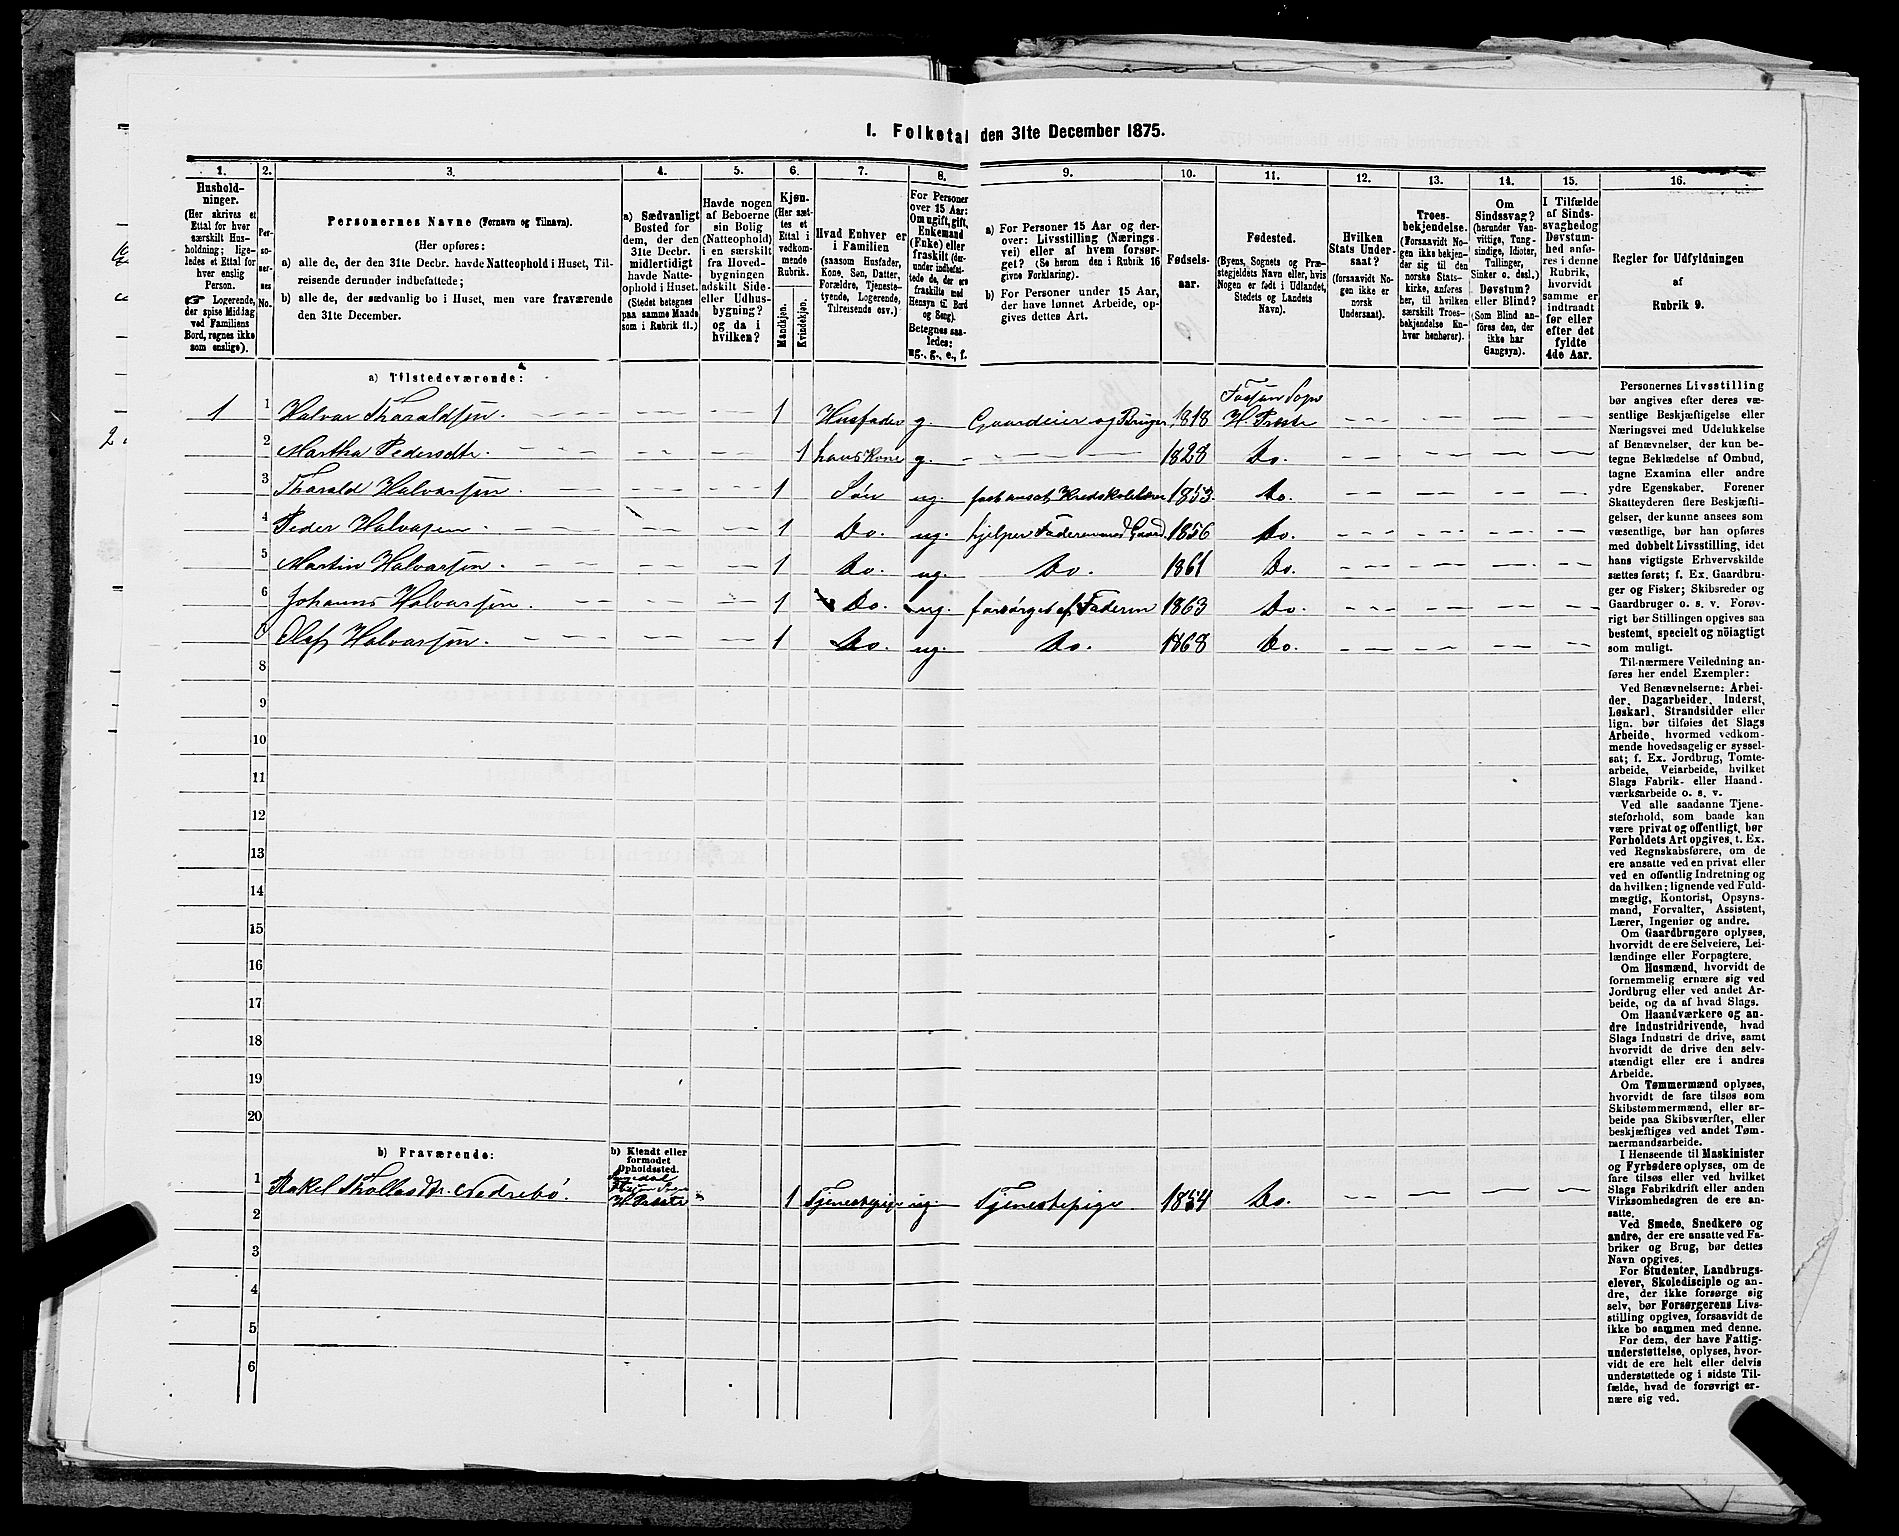 I. Folketal den 31te December 1875.
1. 2. 3. 4. 5. 6. 7. 8. 9. 10. 11. 12. 13. 14. 15. 16.
Hushold-
ninger.
(Her skrives et
Ettal for hver
særskilt Hus-
holdning; lige-
ledes et Ettal for
hver enslig
Person.
Logerende,
der spise Middag
ved Familiens
Bord, regnes ikke
som enslige).
Per-
so-
ner-
nes
No.
Personernes Navne (Fornavn og Tilnavn).
(Her opføres:
a) alle de, der den 31te Decbr. havde Natteophold i Huset, Til-
reisende derunder indbefattede;
b) alle de, der sædvanlig bo i Huset, men vare fraværende
den 31te December.
a) Sædvanligt
Bosted for
dem, der den
31te Decbr.
midlertidigt
havde Natte-
ophold i Huset.
(Stedet betegnes
paa samme Maade
som i Rubrik 11.)
Havde nogen
af Beboerne
sin Bolig
(Natteophold)
i en særskilt
fra Hoved-
bygningen
adskilt Side-
eller Udhus-
bygning?
og da i
hvilken?
Kjøn.
(Her sæt-
tes et
Ettal i
vedkom-
mende
Rubrik.
Mandkjøn.
Kvindekjøn.
Hvad Enhver er
i Familien
(saasom Husfader,
Kone, Søn, Datter,
Forældre, Tjeneste-
tyende, Logerende,
Tilreisende osv.)
For Personer
over 15 Aar:
Om ugift, gift,
Enkemand
(Enke) eller
fraskilt (der-
under indbefat-
tede de, der ere
fraskilte med
Hensyn til Bord
og Seng).
Betegnes saa-
ledes:
ug., g., e., f.
a) For Personer 15 Aar og der-
over: Livsstilling (Nærings-
vei) eller af hvem forsør-
get? (Se herom den i Rubrik 16
givne Forklaring).
b) For Personer under 15 Aar,
der have lønnet Arbeide, op-
gives dettes Art.
Fødsels-
aar.
Fødested.
(Byens, Sognets og Præ-
stegjeldets Navn eller, hvis
Nogen er født i Udlandet,
Stedets og Landets
Navn).
Hvilken
Stats Under-
saat?
(forsaavidt No-
gen ikke er
norsk
Undersaat).
Troes-
bekjendelse.
(Forsaavidt No-
gen ikke bekjen-
der sig til den
norske Stats-
kirke, anføres
her, til hvilken
særskilt Troes-
bekjendelse En-
hver henhører).
Om
Sindssvag?
(herunder Van-
vittige, Tung-
sindige, Idioter,
Tullinger,
Sinker o. desl.)
Døvstum?
eller Blind?
(Som Blind an-
føres den, der
ikke har
Gangsyn).
I Tilfælde
af Sinds-
svaghed og
Døvstum-
hed anfø-
res i denne
Rubrik,
hvorvidt
samme er
indtraadt
før eller
efter det
fyldte
4de Aar.
Regler for Udfyldningen
af
Rubrik 9.
a) Tilstedeværende:
1 1 Halvar Tharaldsen. 1 Husfader g. Gaardeier og Bruger 1818 H. Præste
2 Martha Pedersdtr. 1 hans Kone g. 1828 Do.
3 Tharald Halvarsen. 1 Søn ug. fast ansat Kredskolelærer 1853 Do.
4 Peder Halvasen. 1 Do. ug. hjelper Faderen med Gaard. 1856 Do.
5 Martin Halvarsen. 1 Do. ug. Do. 1861 Do.
6 Johannes Halvarsen. 1 Do. ug. forsørget af Faderen 1863 Do.
Olaf Halvarsen. 1 Do. ug. Do. 1868 Do.
8
9
10
11
12
13
14
15
16
17
18
19
20
b) Fraværende:
b) Kjendt eller
formodet
Opholdssted.
1 Rakel Thollasdtr. Nedrebö. H. Præste 1 Tjenestepige ug. Tjenestepige. 1854 Do.
2
3
4
5
6
Personernes Livsstilling
bør angives efter deres væ-
sentlige Beskjæftigelse eller
Næringsvei med Udelukkelse
af Benævnelser, der kun be-
tegne Beklædelse af Ombud,
tagne Examina eller andre
ydre Egenskaber. Forener
Skatteyderen flere Beskjæfti-
gelser, der kunne ansees som
væsentlige, bør han opføres
med dobbelt Livsstilling, idet
hans vigtigste Erhvervskilde
sættes først; f. Ex. Gaardbru-
ger og Fisker; Skibsreder og
Gaardbruger o. s. v. Forøv-
rigt bør Stillingen opgives saa
bestemt, specielt og nöiagtigt
som muligt.
Til nærmere Veiledning an-
føres her endel Exempler:
Ved Benævnelserne: Arbei-
der, Dagarbeider, Inderst,
Løskarl, Strandsidder eller
lign. bør tilføies det Slags
Arbeide, hvormed vedkom-
mende hovedsagelig er syssel-
sat; f. Ex. Jordbrug, Tomte-
arbeide, Veiarbeide, hvilket
Slags Fabrik- eller Haand-
værksarbeide o. s. v.
Ved alle saadanne Tjene-
steforhold, som baade kan
være privat og offentligt, bør
Forholdets Art opgives, t. Ex.
ved Regnskabsførere, om de
ere ansatte ved en privat eller
ved en offentlig Indretning og
da hvilken; lignende ved Fuld-
mægtig, Kontorist, Opsyns-
mand, Forvalter, Assistent,
Lærer, Ingeniør og andre.
Om Gaardbrugere oplyses,
hvorvidt de ere Selveiere, Lei-
lændinge eller Forpagtere.
Om Husmænd, hvorvidt de
fornemmelig ernære sig ved
Jordbrug eller ved andet Ar-
beide, og da af hvad Slags.
Om Haandværkere og an-
dre Industridrivende, hvad
Slags Industri de drive, samt
hvorvidt de drive den selv-
stændigt eller ere i andres
Arbeide.
Om Tømmermænd oplyses,
hvorvidt de fare tilsøs som
Skibstømmermænd, eller ar-
beide paa Skibsværfter, eller
beskjæftiges ved andet Tøm-
mermandsarbeide.
I Henseende til Maskinister
og Fyrbødere oplyses, om de
fare tilsøs eller ved hvilket
Slags Fabrikdrift eller anden
Virksomhedsgren de ere an-
satte.
Ved Smede, Snedkere og
andre, der ere ansatte ved Fa-
briker og Brug, bør dettes
Navn opgives.
For Studenter, Landbrugs-
elever, Skoledisciple og an-
dre, der ikke forsørge sig
selv, bør Forsørgerens Livs-
stilling opgives, forsaavidt de
ikke bo sammen med denne.
For dem, der have Fattig-
understøttelse, oplyses, hvor-
vidt de ere helt eller delvis
understøttede og i sidste Til-
fælde, hvad de forøvrigt er-
nære sig ved.